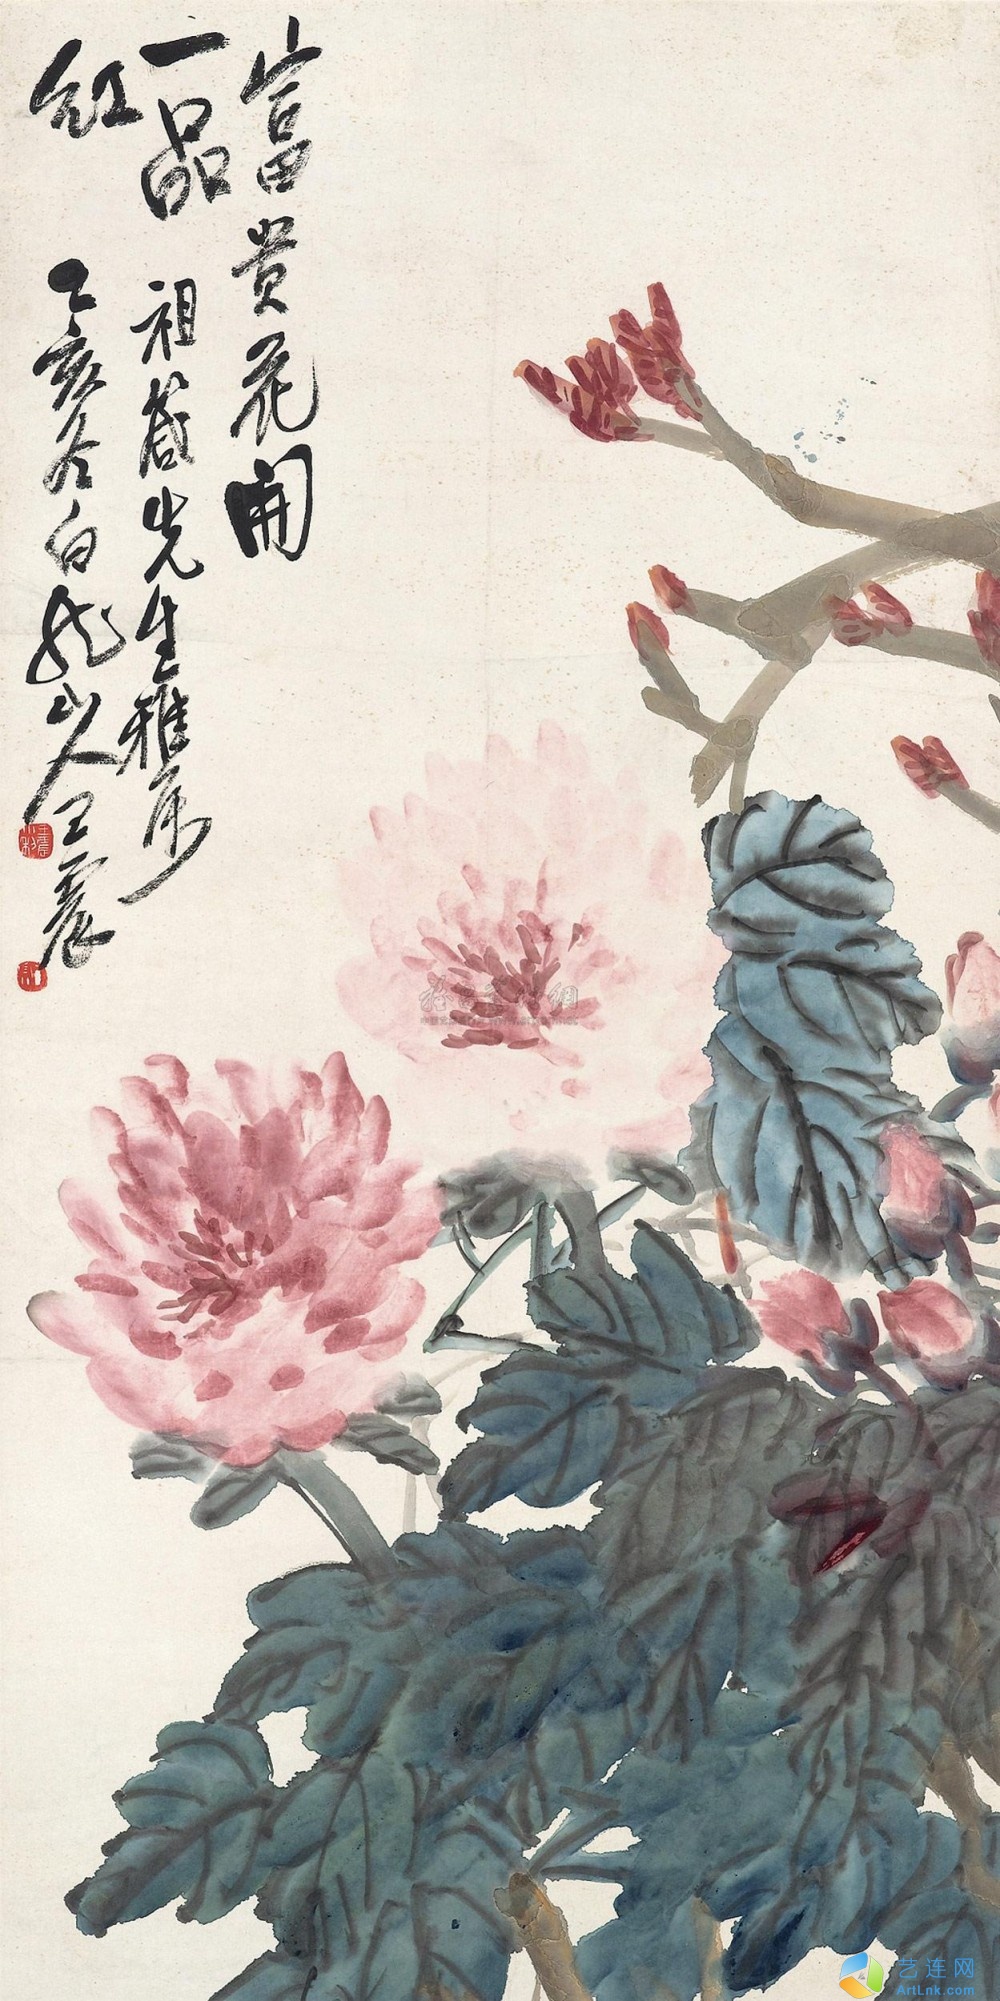 富貴花開
一品
紅
祖蔭先生雅屬
乙亥冬白龍山人王震
艺连网
ArtLnk.com